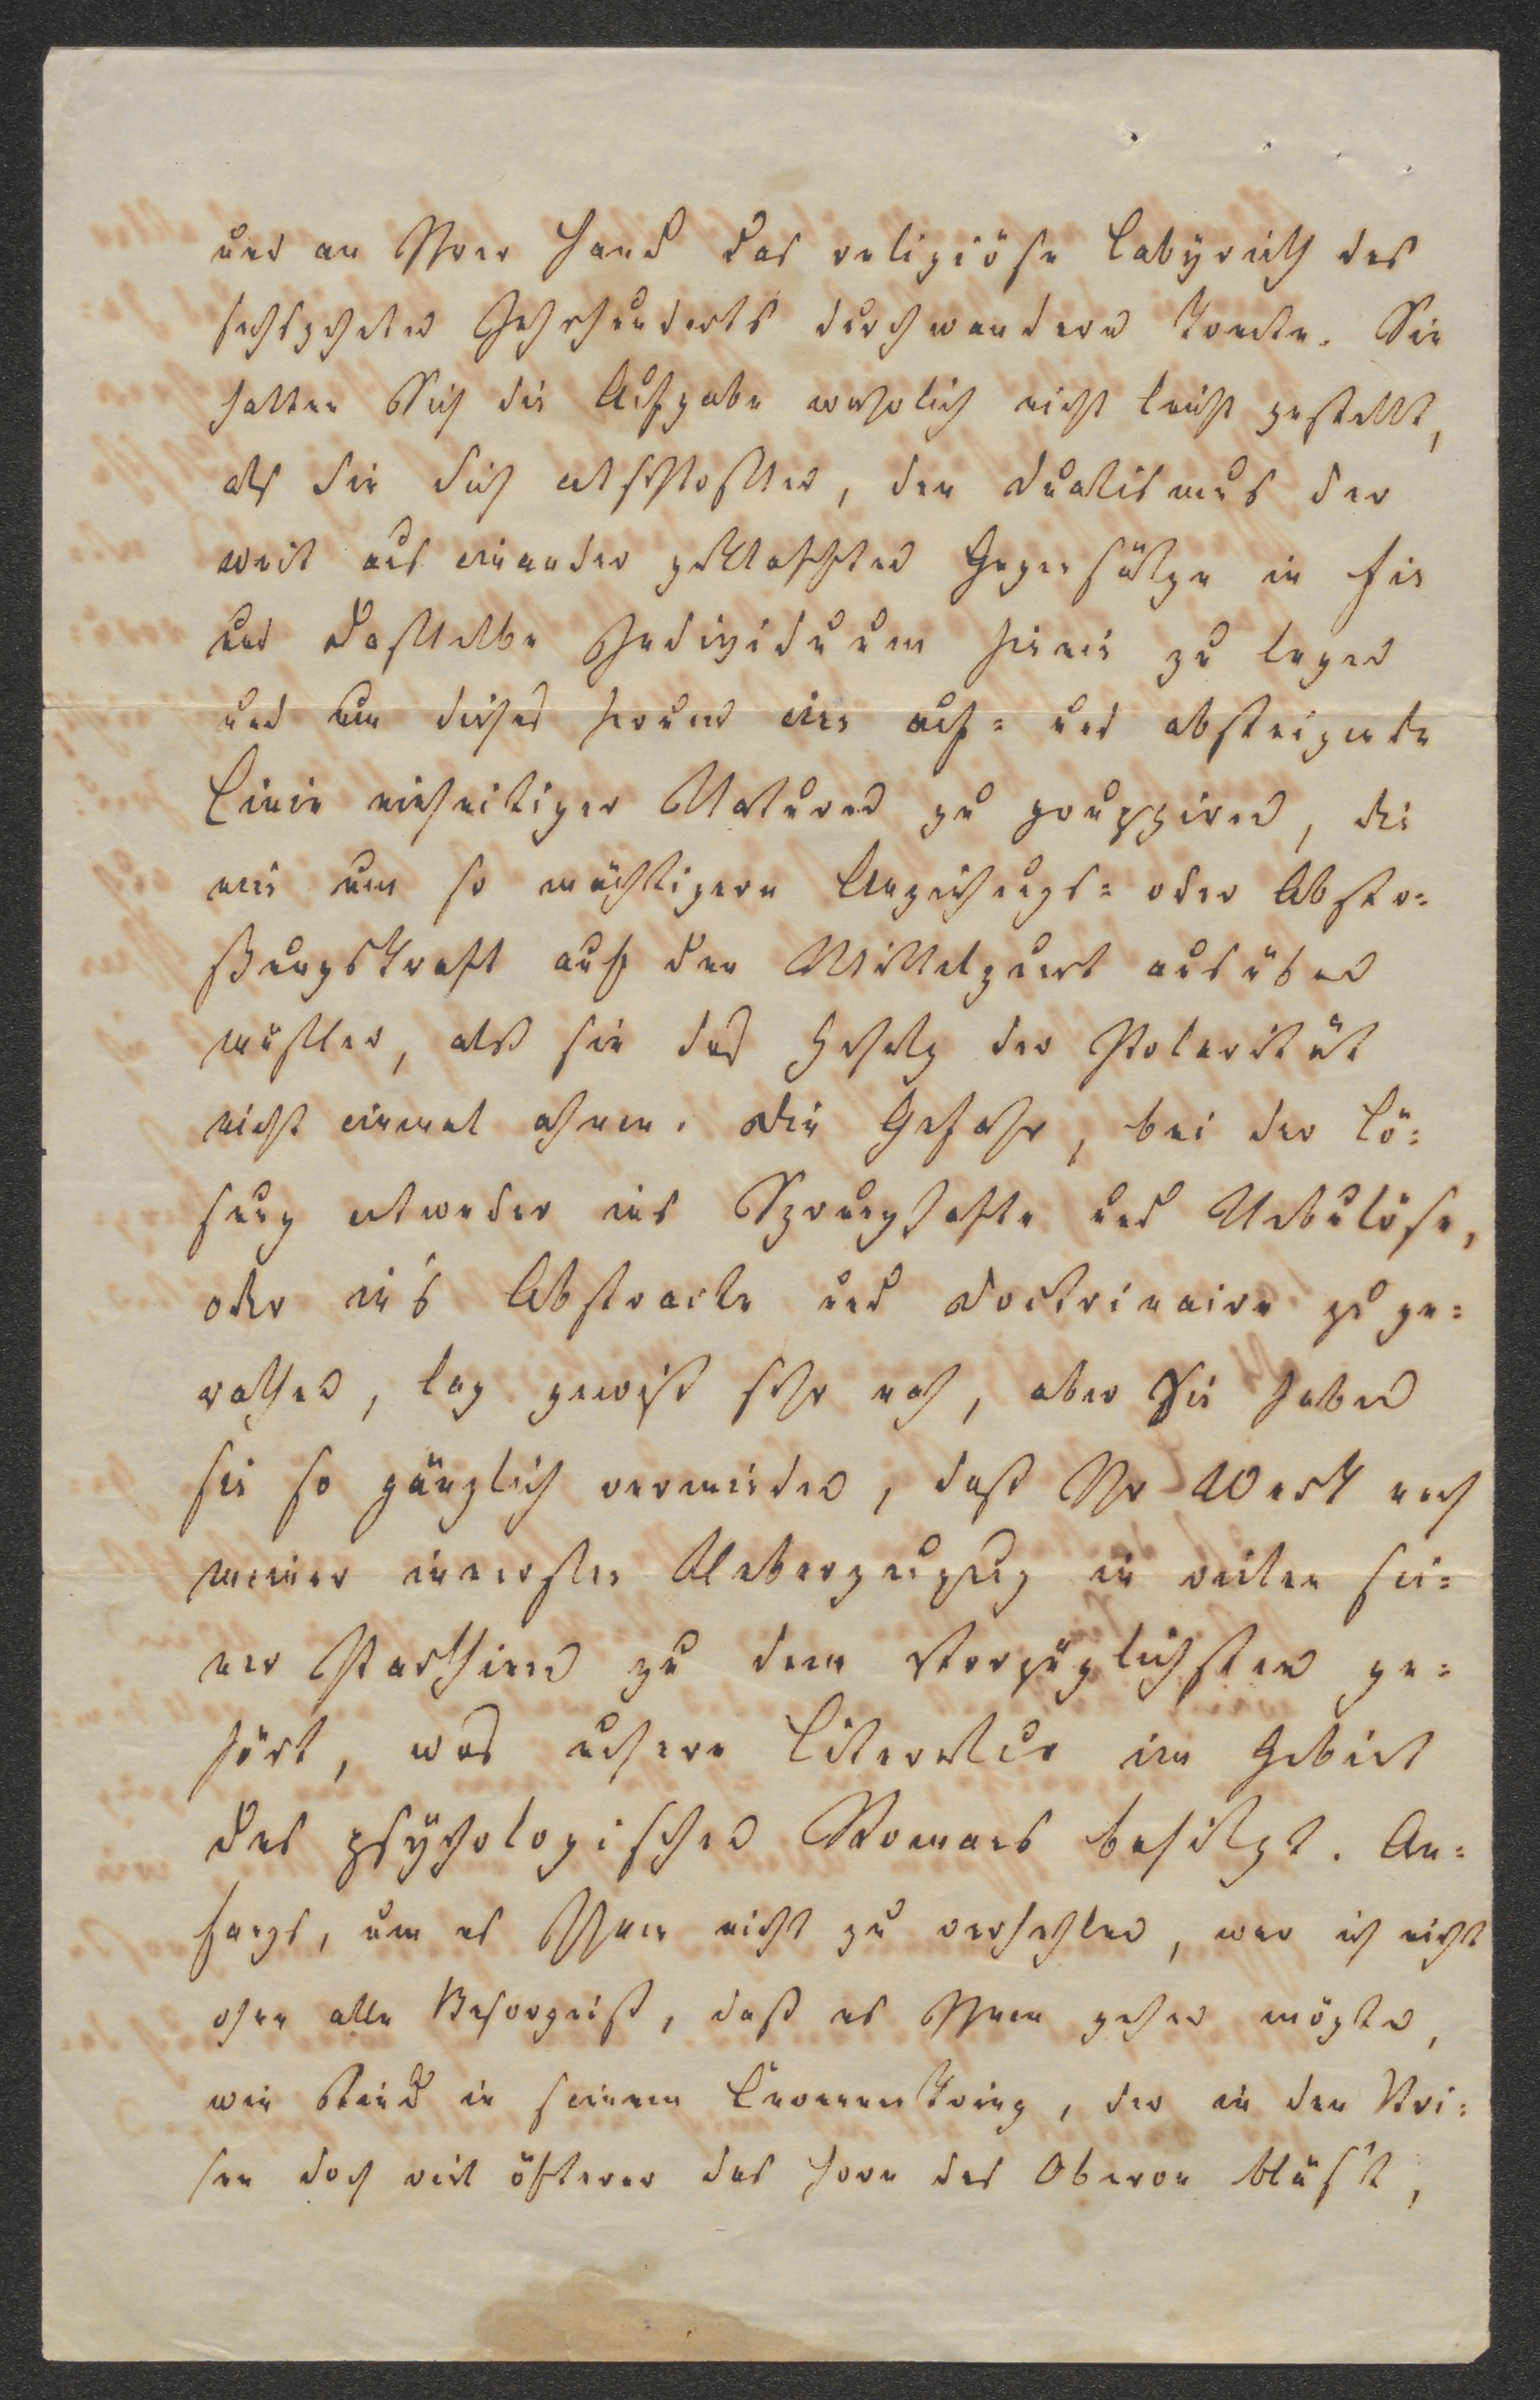 und an Ihrer Hand das religiöse Labyrinth des
sechszehnten Jahrhunderts durchwandern konnte. Sie
hatten Sich die Aufgabe wahrlich nicht leicht gestellt,
als Sie Sich entschlossen, den Dualismus der
weit aus einander geklafften Gegensätze in Ein
und dasselbe Individuum hinein zu legen
und um dieses herum eine auf= und absteigende
Linie einseitiger Naturen zu grouppiren, die
eine um so mächtigere Anziehungs= oder Absto=
ßungskraft auf den Mittelpunct ausüben
mußten, als sie das Gesetz der Polarität
nicht einmal ahnen. Die Gefahr, bei der Lö=
sung entweder ins Sprunghafte und Nebulöse,
oder in's Abstracte und Doctrinaire zu ge=
rathen, lag gewiß sehr nah, aber Sie haben
sie so gänzlich vermieden, daß Ihr Werk nach
meiner innersten Ueberzeugung in vielen sei=
ner Parthieen zu dem Vorzüglichsten ge=
hört, was unsere Literatur im Gebiet
des psychologischen Romans besitzt. An=
fangs, um es Ihnen nicht zu verhehlen, war ich nicht
ohne alle Besorgniß, daß es Ihnen gehen mögte,
wie Tieck in seinem Cevennenkrieg, der in den Kri=
sen doch viel öfterer das Horn des Oberon bläs't,